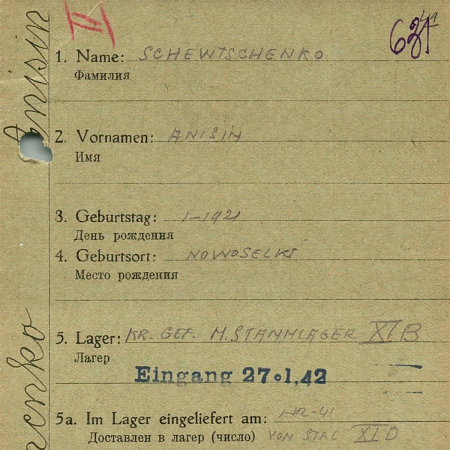 III
631
Anisin
1. Name: SCHEWTSCHENKO
Фамилия
2. Vornamen: ANISIN
Имя
3. Geburtstag: 1-1921
День рождения
4. Geburtsort: NOWOSELKI
Место рождения
5. Lager: KR. GEF. M. STAMMLAGER XI B
Лагер
Eingang 27.1.42
5a. Im Lager eingeliefert am:
Доставлен в лагер (число) VON STAL XI D